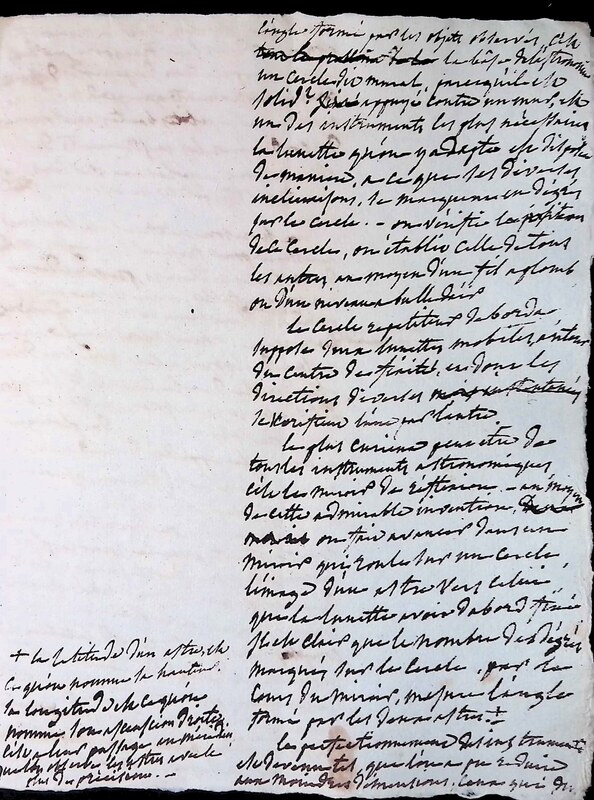 l'angle formé par les objets observés, c'est
la base de l'astronomie
un cercle dit mural, parcequ'il est
solidt appuyé contre un mur, est
un des instruments les plus nécessaires
la lunette qu'on y adapte est disposée
de maniere, a ce que ses diverses
inclinaisons, se marquent en degrés
sur le cercle. - on vérifie la position
de ce cercle, on établit celle de tous
les autres, au moyen d'un fil a plomb
ou d'un niveau a bulle d'air
le cercle repetiteur de borda
suppose deux lunettes mobiles, autour
du centre de , et dont les
directions diverses
se verifient l'une par l'autre
le plus curieux peut être de
tous les instruments astronomiques
c'est le miroir de réflexion. - au moyen
de cette admirable invention,
on fait avancer dans un
miroir qui roule sur un cercle
l'image d'un astre vers celui,
que la lunette avoit d'abord fixé
il est clair que le nombre des degrés
marqués sur le cercle, par le
cours du miroir, mesure l'angle
formé par les deux astres +
le perfectionnement des instruments
est devenu tel, que l'on a pu reduire
aux moindres dimensions, ceux qui
+ la latitude d'un astre, est
ce qu'on nomme sa hauteur.
sa longitude est ce qu'on
nomme son ascension droite,
c'est a leur passage au méridien
que l'on observe les astres avec le
plus de précision. -